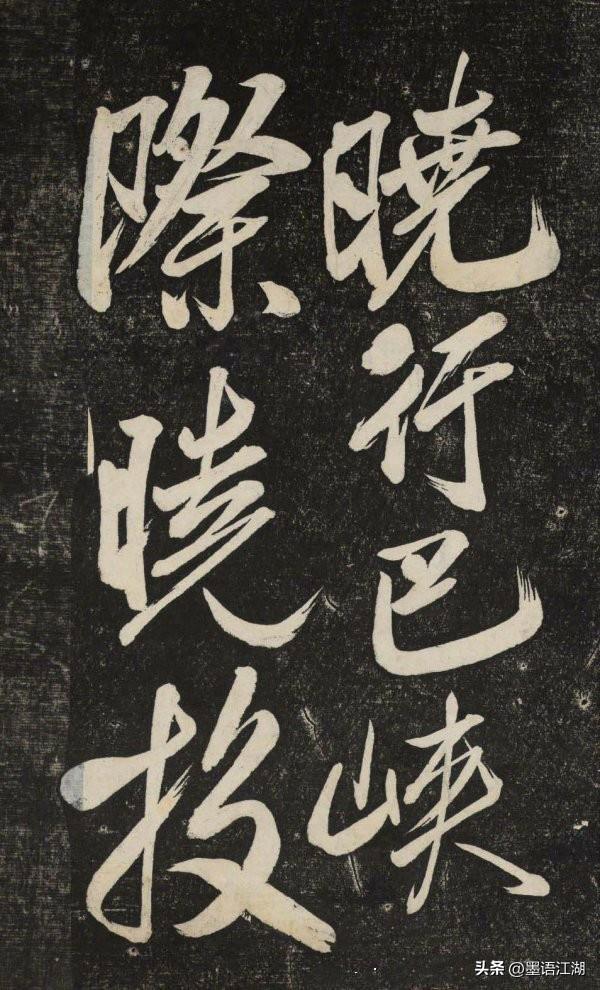 曉行巴峽
際曉投
头条 @墨语江湖